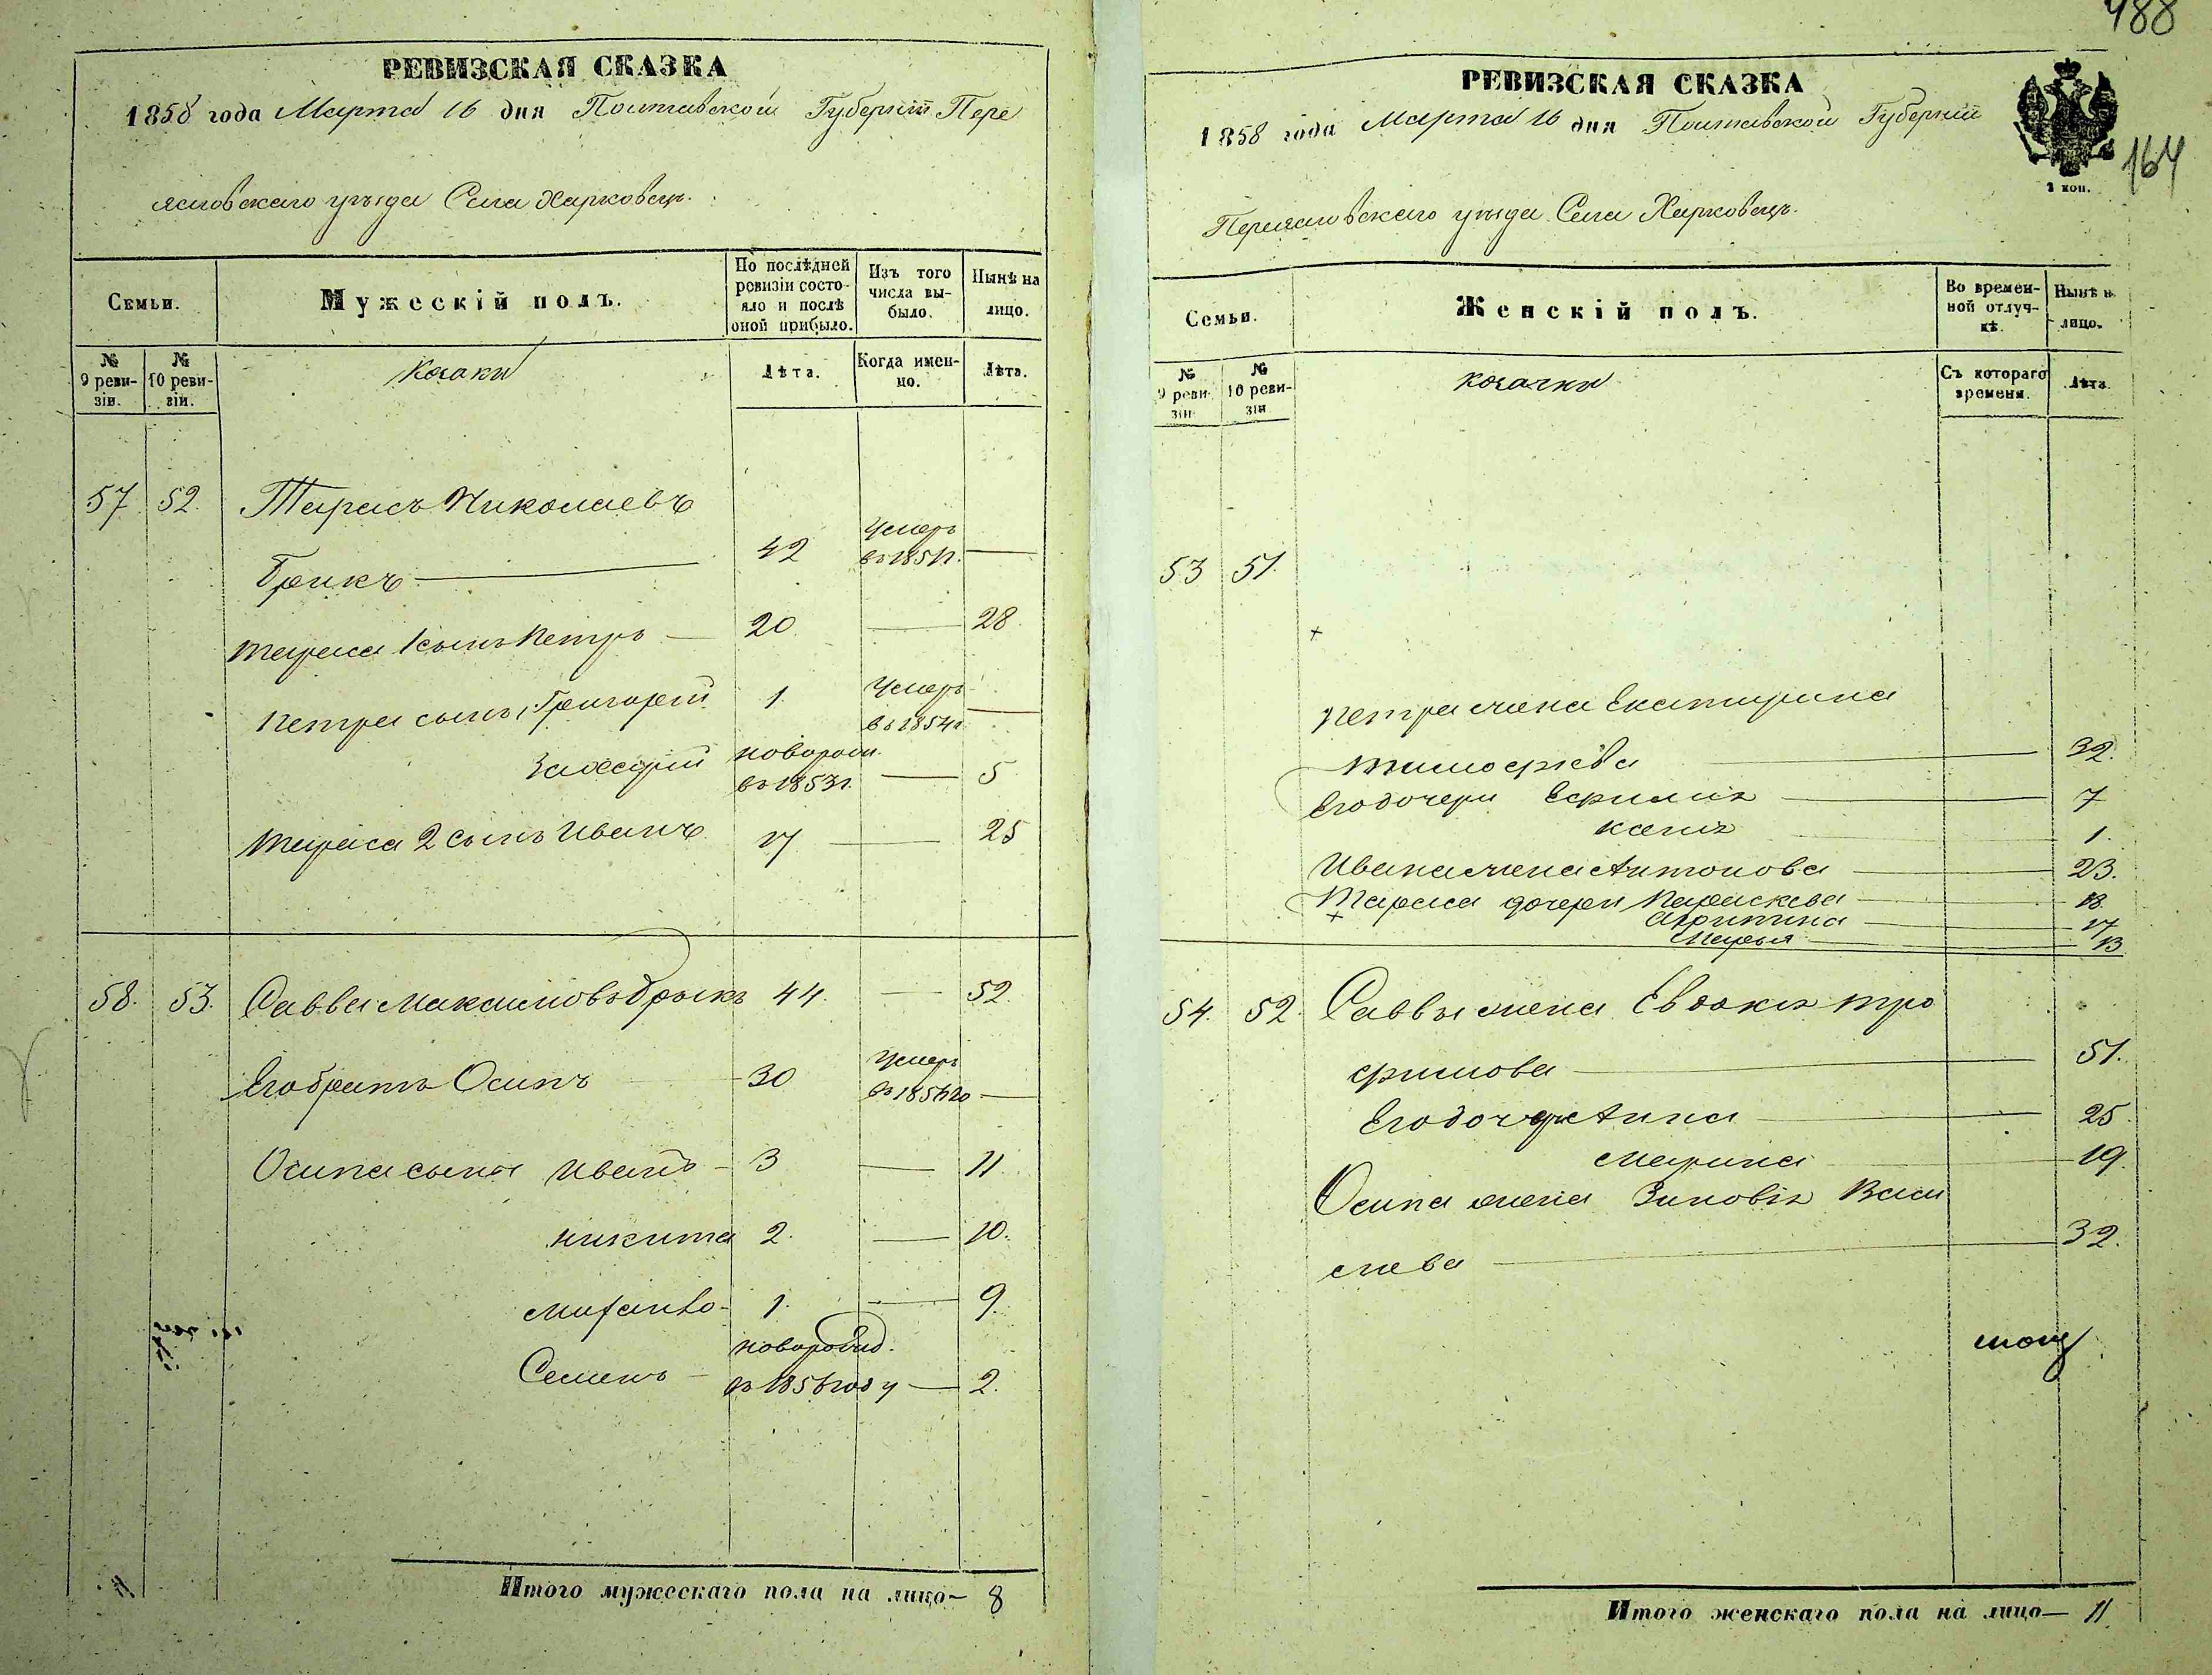 РЕВИЗСКАЯ СКАЗКА
1858 года Марта 16 дня Полтавской Губернии Пере
яславскаго уѣзда Села Харковецъ.
Семьи.
Мужескій полъ.
По послѣдней ревизіи состояло и послѣ оной прибыло.
Изъ того числа выбыло.
Нынѣ на лицо.
№ 9 ревизіи.
№ 10 ревизіи.
Козаки
Лѣта.
Когда именно.
Лѣта.
57 52. Тарасъ Николаевъ
Грикъ 42 Умеръ въ 1851г.
Тараса 1 сынъ Петръ 20 28
Петра сынъ, Григорій 1 Умеръ въ 1854г.
новорож. въ 1853г. 5
Тараса 2 сынъ Иванъ 17 25
58. 53. Савва Максимовъ 44. 52.
Его братъ Осипъ 30 Умеръ
Осипа сыны Иванъ 3 11
Никита 2. 10.
1. 9.
Семенъ новорожд. въ 1856 году 2.
Итого мужескаго пола на лицо— 8
488
РЕВИЗСКАЯ СКАЗКА
1858 года Марта 16 дня Полтавской Губернии
164
2 коп.
Переяславскаго уѣзда Села Харковецъ.
Семьи.
Женскій полъ.
Во временной отлучкѣ.
Нынѣ н лицо.
№ 9 реви зіи
№ 10 ревизіи
козачки
Съ котораго времени.
Лѣта.
53 51.
Петра жена Екатирина
Тимофіева 32.
Его дочери Ефимія 7
Ксенія 1.
Ивана жена Антонова 23.
Тараса дочери Параскева 18.
17
Марья 13
54. 52. Саввы жена Евдокія Тро
фимова 51.
Его дочери Анна 25.
Марина 19.
Осипа жена Зиновія Васи
лева 32.
Итого женскаго пола на лицо— 11